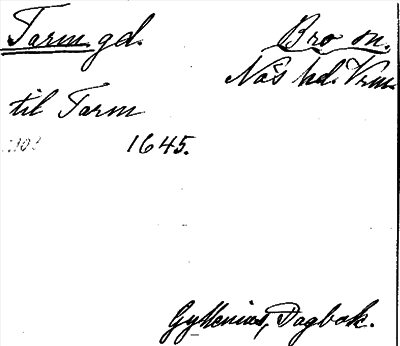 Tarm gd.
Bro sn.
Näs hd. Vrm.
til Tarm
1645.
Gyllenius, Dagbok.